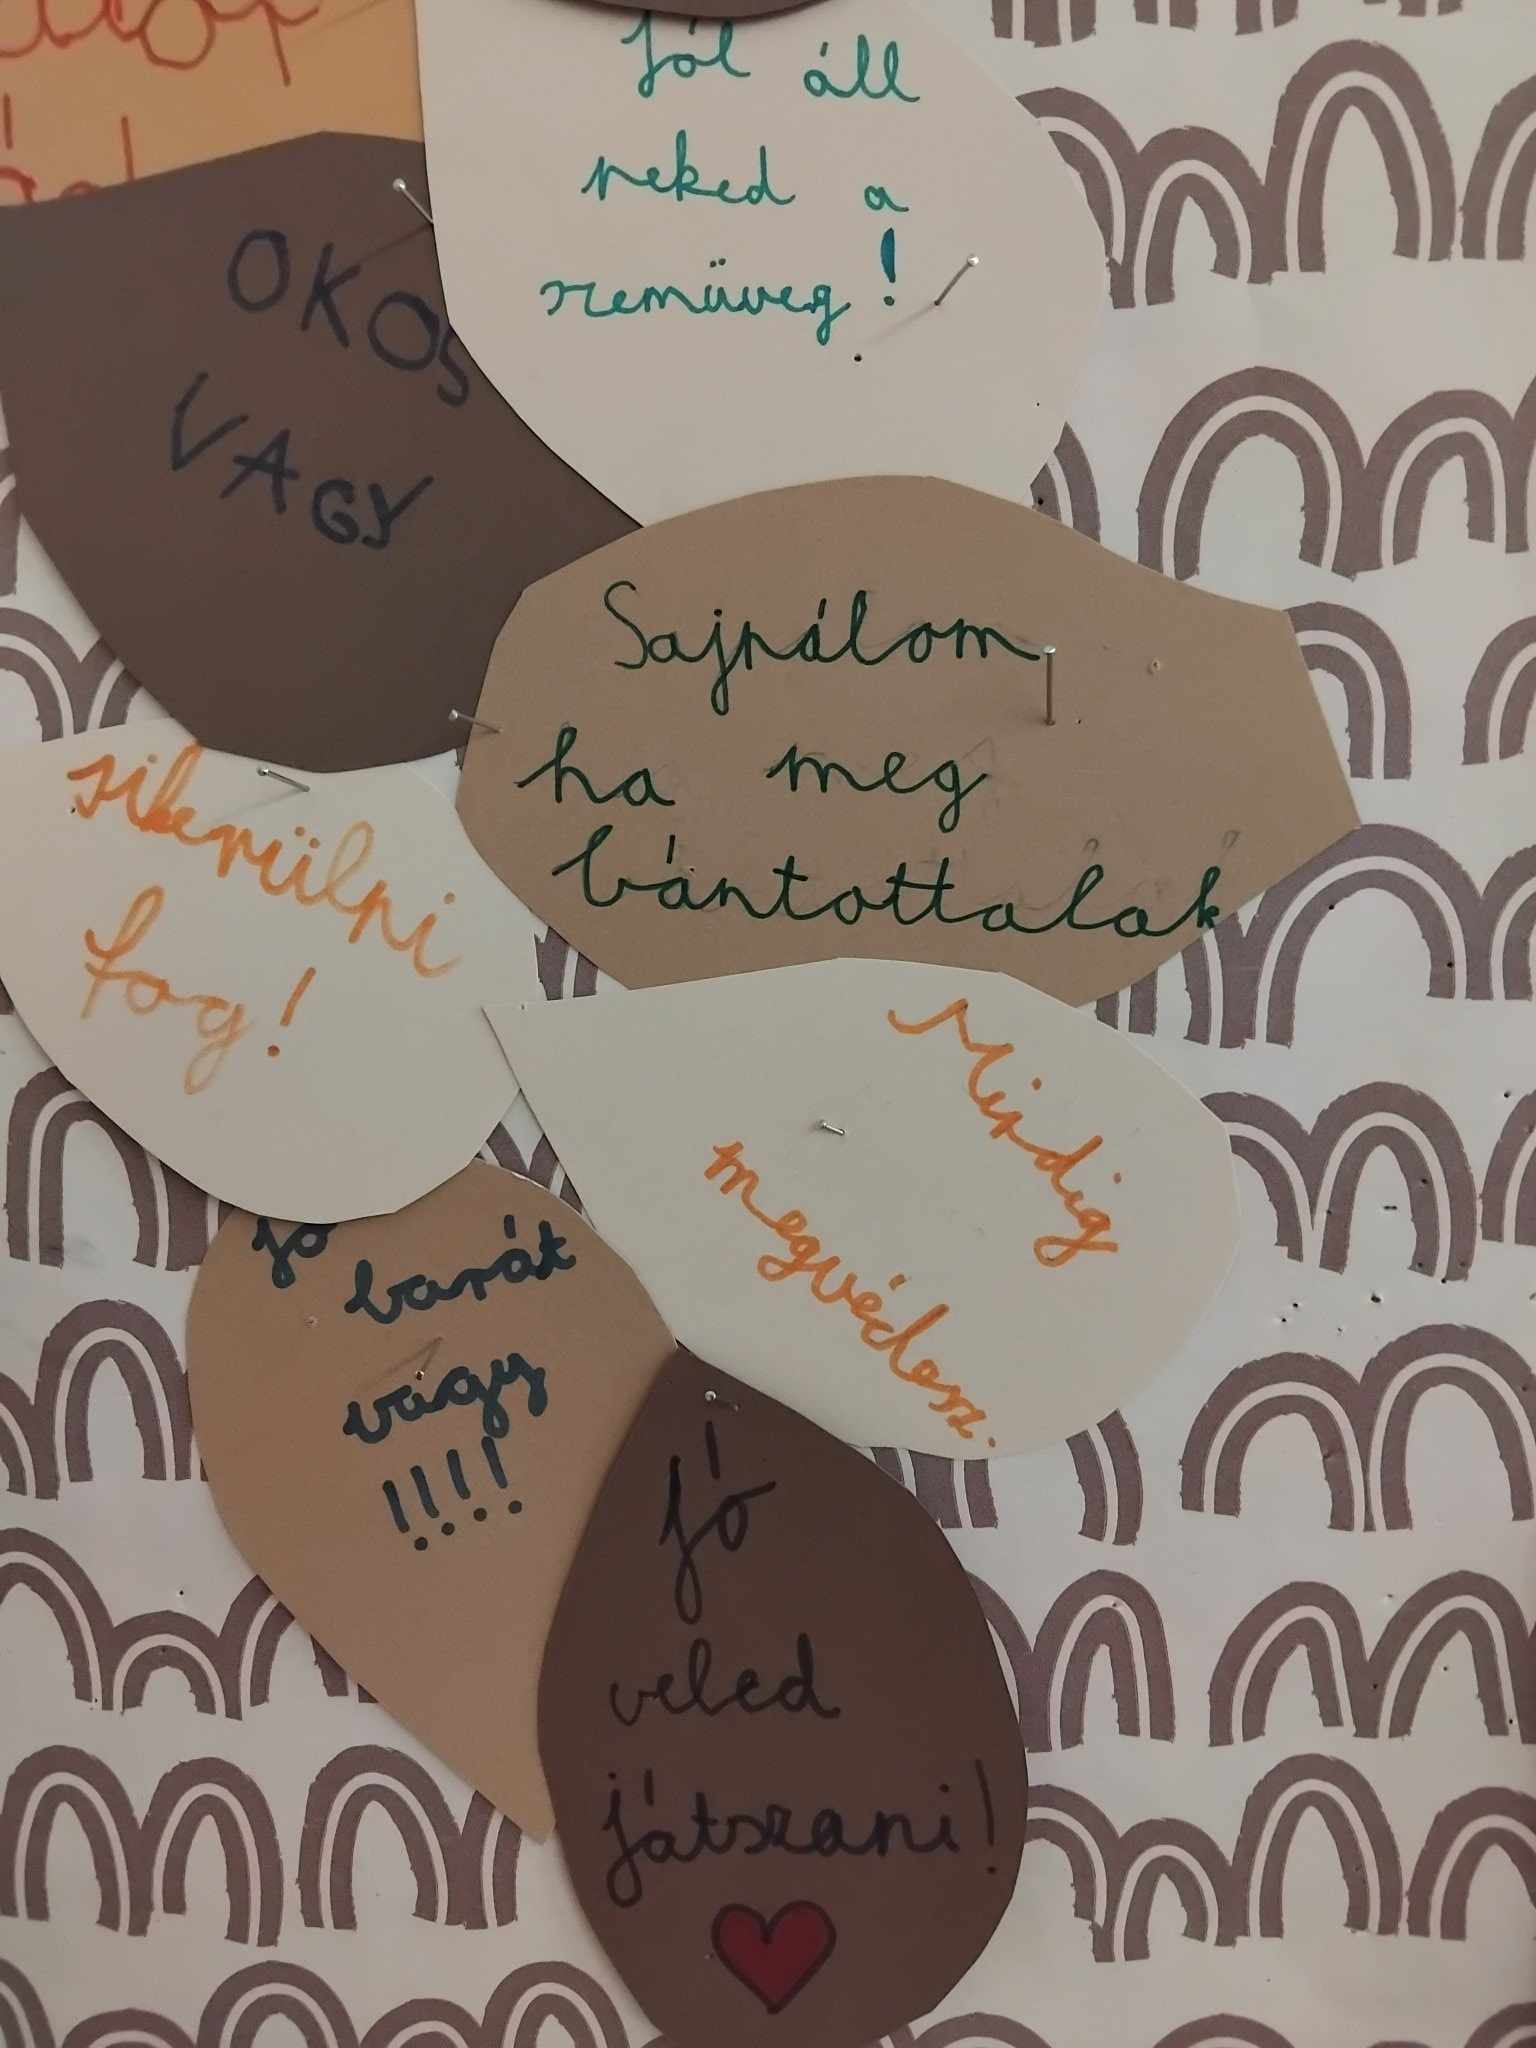 Jól áll
neked a
szemüveg!
OKOS
VAGY
Sajnálom
ha meg
bántottalak
sikerülni
fog!
Mindig
megvédesz.
jó
barát
vagy
!!!!
jó
veled
játszani!